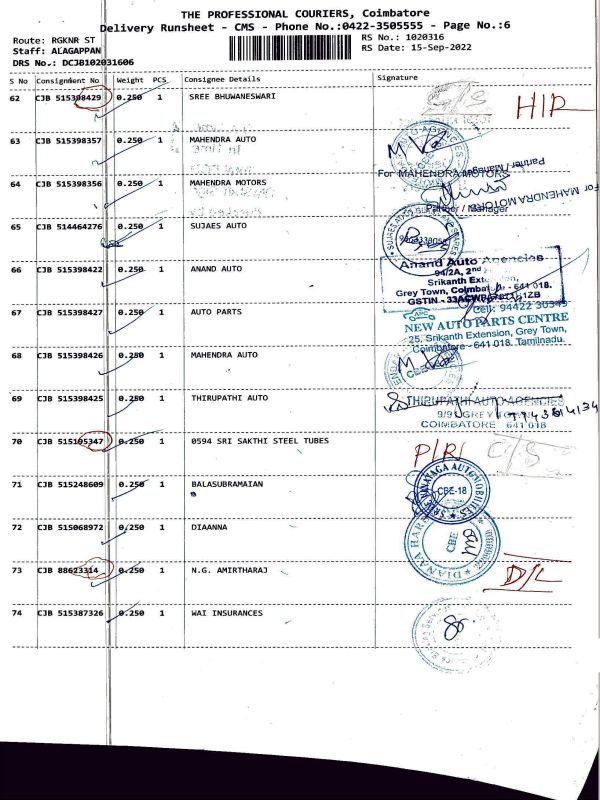 THE PROFESSIONAL COURIERS, Coimbatore
Delivery Runsheet - CMS - Phone No.:0422-3505555 - Page No.:6
Route: RGKNR ST
Staff: ALAGAPPAN
DRS No.: DCJB102031606
RS No.: 1020316
RS Date: 15-Sep-2022
S No Consignment No Weight PCS Consignee Details Signature
62 CJB 515398429 0.250 1 SREE BHUWANESWARI
C/S
63 CJB 515398357 0.250 1 MAHENDRA AUTO
For MAHENDRA MOTORS
Partner / Manager
64 CJB 515398356 0.250 1 MAHENDRA MOTORS
For MAHENDRA MOTORS
Partner / Manager
65 CJB 514464276 0.250 1 SUJAES AUTO
66 CJB 515398422 0.250 1 ANAND AUTO
Anand Auto Agencies
94/2A, 2nd
Srikanth Extension,
Grey Town, Coimbatore - 641 018.
67 CJB 515398427 0.250 1 AUTO PARTS
Cell: 94422 30349
NEW AUTO PARTS CENTRE
25, Srikanth Extension, Grey Town,
Coimbatore - 641 018. Tamilnadu.
68 CJB 515398426 0.250 1 MAHENDRA AUTO
69 CJB 515398425 0.250 1 THIRUPATHI AUTO
THIRUPATHI AUTO AGENCIES
9/9 GREY TOWN
COIMBATORE 641 018
70 CJB 515105347 0.250 1 0594 SRI SAKTHI STEEL TUBES
C/S
71 CJB 515248609 0.250 1 BALASUBRAMAIAN
VINAYAGA AUTOMOBILES
CBE-18
72 CJB 515068972 0.250 1 DIAANNA
CBE
73 CJB 88623314 0.250 1 N.G. AMIRTHARAJ
D/L
74 CJB 515387326 0.250 1 WAI INSURANCES